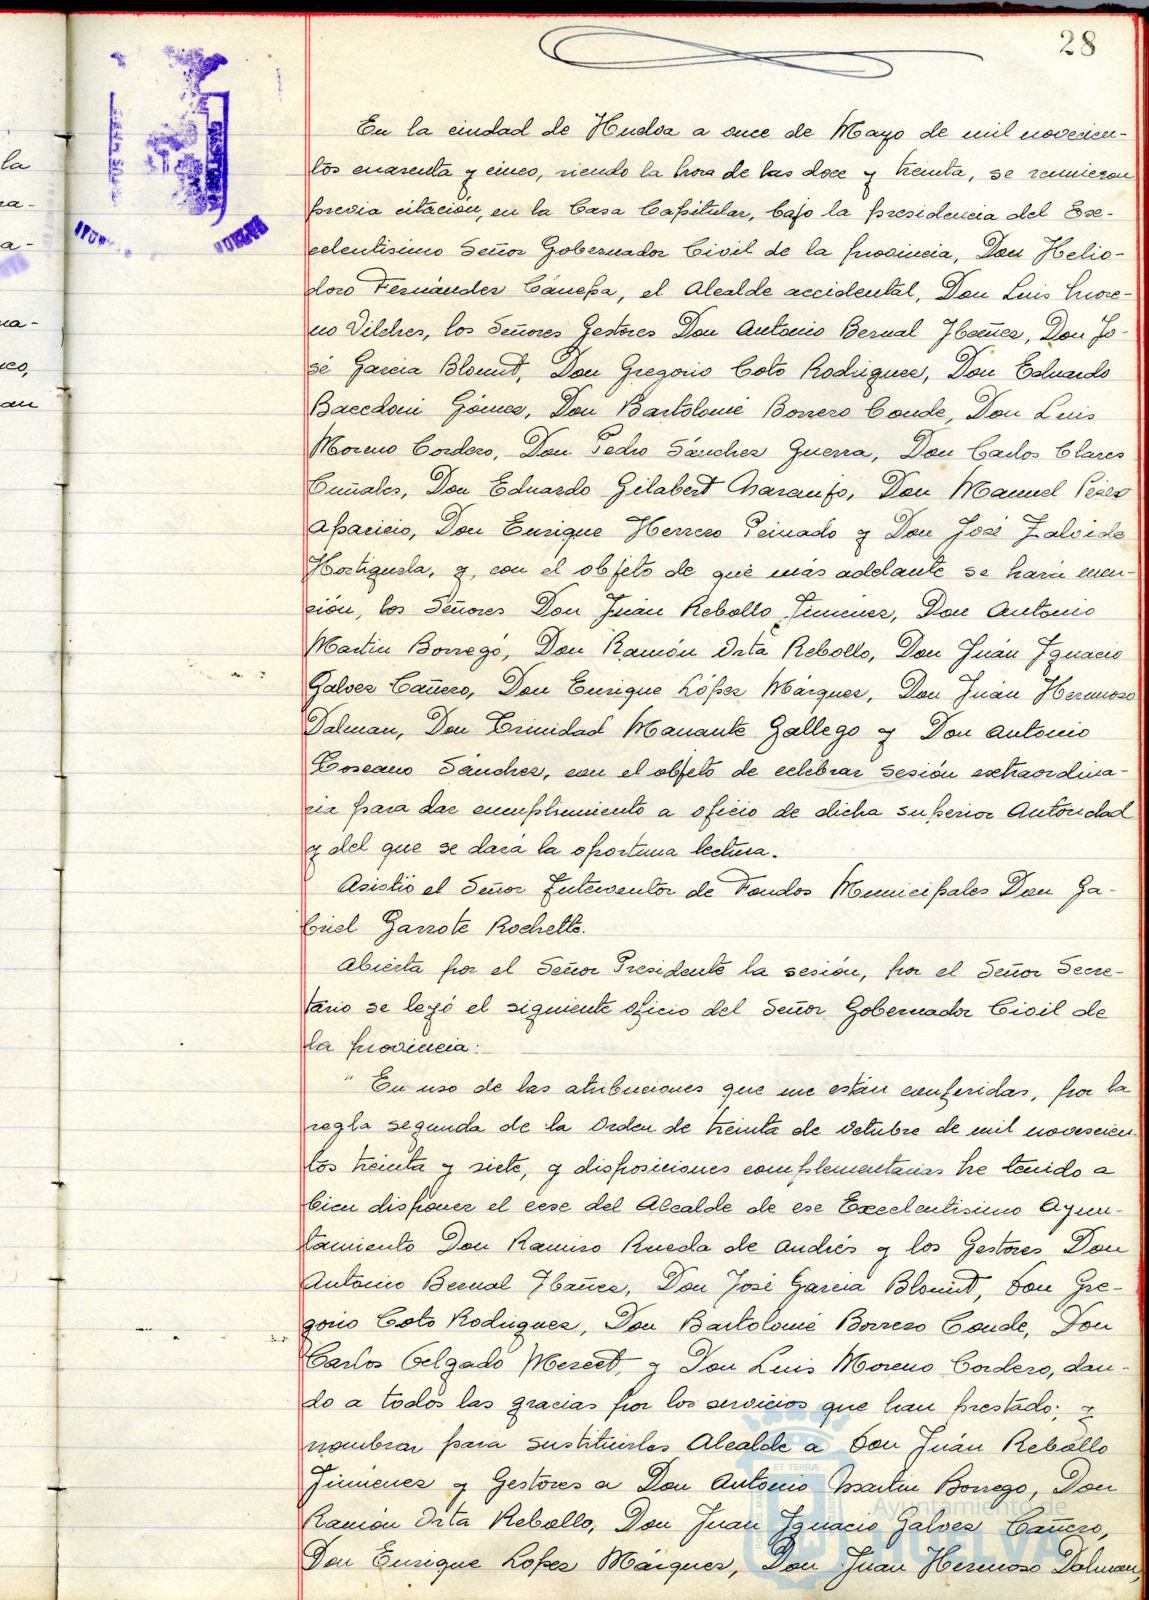 28
En la ciudad de Huelva a once de Mayo de mil novecien-
tos cuarenta y cinco, siendo la hora de las doce y treinta, se reunieron
previa citación, en la Casa Capitular, bajo la presidencia del Exc-
celentisimo Señor Gobernador Civil de la provincia, Don Helio-
doro Fernández Cánepa, el Alcalde accidental, Don Luis More-
no Vilches, los Señores Gestores Don Antonio Bernal Ibañez, Don Jo-
sé Garcia Blount, Don Gregorio Coto Rodriguez, Don Eduardo
Gómez, Don Bartolomé Borrero Conde, Don Luis
Moreno Cordero, Don Pedro Sánchez Guerra, Don Carlos Clares
Don Eduardo Gilabert Naranjo, Don Manuel Perez
Aparicio, Don Enrique Herrero Peinado y Don José Zalvide
Hortiguela, y, con el objeto de que más adelante se hará men-
ción, los Señores Don Juán Rebollo Jimenez, Don Antonio
Martin Borregó, Don Ramón Orta Rebollo, Don Juán Ignacio
Galvez Cañero, Don Enrique López Márquez, Don Juán Hermoso
Dalman, Don Trinidad Manante Gallego y Don Antonio
Toscano Sánchez, con el objeto de celebrar sesión extraordina-
ria para dar cumplimiento a oficio de dicha superior Autoridad
y del que se dará la oportuna lectura.
Asistió el Señor Interventor de Fondos Municipales Don Ga-
briel Garrote Rochette.
Abierta por el Señor Presidente la sesión, por el Señor Secre-
tario se leyó el siguiente oficio del Señor Gobernador Civil de
la provincia:
" En uso de las atribuciones que me están conferidas, por la
regla segunda de la Orden de treinta de Octubre de mil novescien-
tos treinta y siete, y disposiciones complementarias he tenido a
bien disponer el cese del Alcalde de ese Excelentisimo Ayun-
tamiento Don Ramiro Rueda de Andrés y los Gestores Don
Antonio Bernal Ibañez, Don José Garcia Blount, Don Gre-
gorio Coto Rodriguez, Don Bartolomé Borrero Conde, Don
Carlos y Don Luis Moreno Cordero, dan-
do a todos las gracias por los servicios que han prestado; y
nombrar para sustituirles Alcalde a Don Juán Rebollo
Jimenez y Gestores a Don Antonio Martin Borrego, Don
Ramón Orta Rebollo, Don Juan Ignacio Galvez Cañero,
Don Enrique Lopez Márquez, Don Juan Hermoso Dalman,
Ayuntamiento de
HUELVA